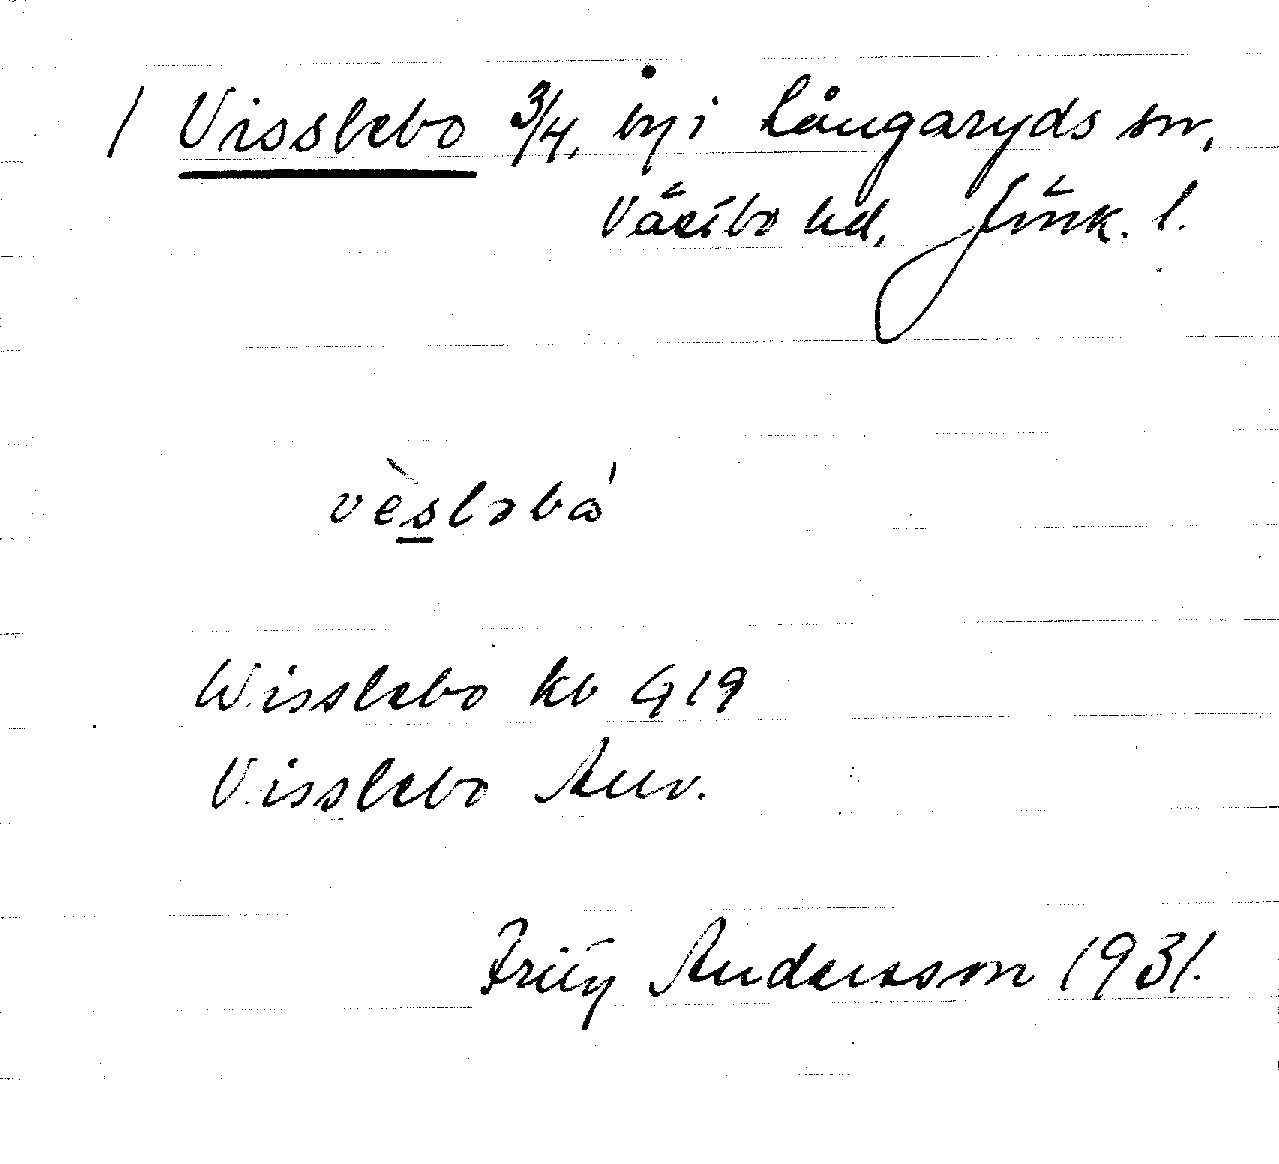 / Visslebo 3/4, by i Långaryds sn,
Västbo hd, Jönk. l.
vèsləbá
Wisslebo kb G19
Visslebo Anv.
Fritz Andersson 1931.